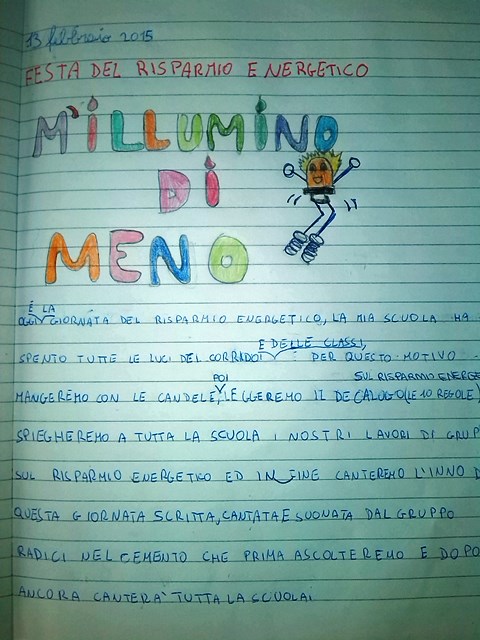 13 febbraio 2015
FESTA DEL RISPARMIO ENERGETICO
M'ILLUMINO
DI
MENO
È LA
OGGI GIORNATA DEL RISPARMIO ENERGETICO, LA MIA SCUOLA HA
E DELLE CLASSI,
SPENTO TUTTE LE LUCI DEL CORRIDOI PER QUESTO MOTIVO
POI SUL RISPARMIO ENERGE
MANGEREMO CON LE CANDELE, LEGGEREMO IL DECALOGO (LE 10 REGOLE)
SPIEGHEREMO A TUTTA LA SCUOLA I NOSTRI LAVORI DI GRUP
SUL RISPARMIO ENERGETICO ED IN FINE CANTEREMO L'INNO D
QUESTA GIORNATA SCRITTA, CANTATA E SUONATA DAL GRUPPO
RADICI NEL CEMENTO CHE PRIMA ASCOLTEREMO E DOPO
ANCORA CANTERA' TUTTA LA SCUOLA!